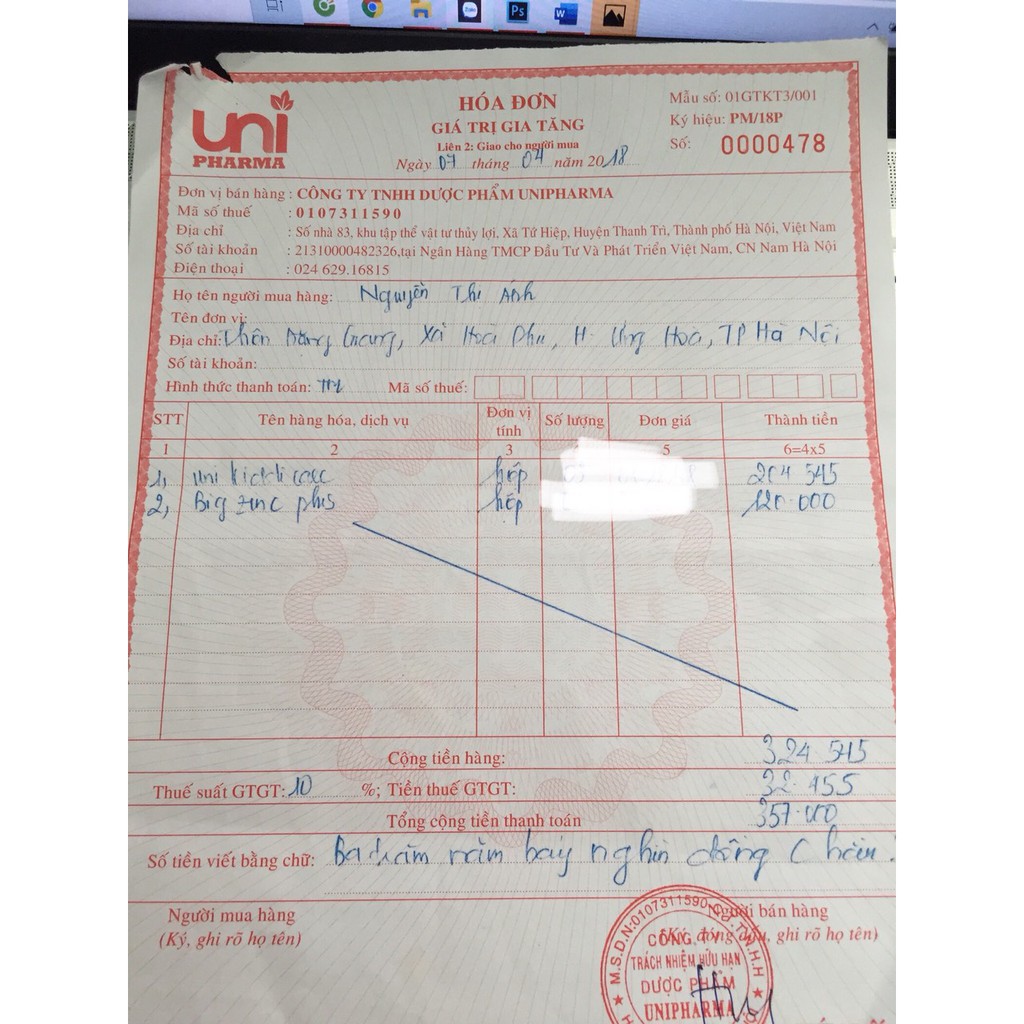 Zalo
Ps
W
uni
PHARMA
HÓA ĐƠN
GIÁ TRỊ GIA TĂNG
Liên 2: Giao cho người mua
Ngày 07 tháng 04 năm 2018
Mẫu số: 01GTKT3/001
Ký hiệu: PM/18P
Số: 0000478
Đơn vị bán hàng : CÔNG TY TNHH DƯỢC PHẨM UNIPHARMA
Mã số thuế : 0107311590
Địa chỉ : Số nhà 83, khu tập thể vật tư thủy lợi, Xã Tứ Hiệp, Huyện Thanh Trì, Thành phố Hà Nội, Việt Nam
Số tài khoản : 21310000482326,tại Ngân Hàng TMCP Đầu Tư Và Phát Triển Việt Nam, CN Nam Hà Nội
Điện thoại : 024 629.16815
Họ tên người mua hàng: Nguyễn Thị Anh
Tên đơn vị:
Địa chỉ: Thôn Giang, Xã Hoà Phú, H. Ứng Hoà, TP Hà Nội
Số tài khoản:
Hình thức thanh toán: TM Mã số thuế:
STT Tên hàng hóa, dịch vụ Đơn vị tính Số lượng Đơn giá Thành tiền
1 2 3 5 6=4x5
1, Uni hộp 204 545
2, Big zinc plus hộp 120.000
Cộng tiền hàng: 324 545
Thuế suất GTGT: 10 %; Tiền thuế GTGT: 32.455
Tổng cộng tiền thanh toán 357.000
Số tiền viết bằng chữ: Ba trăm năm bảy nghìn đồng chẵn.
Người mua hàng
(Ký, ghi rõ họ tên)
Người bán hàng
(Ký, đóng dấu, ghi rõ họ tên)
M.S.D.N:0107311590-C.T.T.N.H.H
CÔNG TY
TRÁCH NHIỆM HỮU HẠN
DƯỢC PHẨM
UNIPHARMA